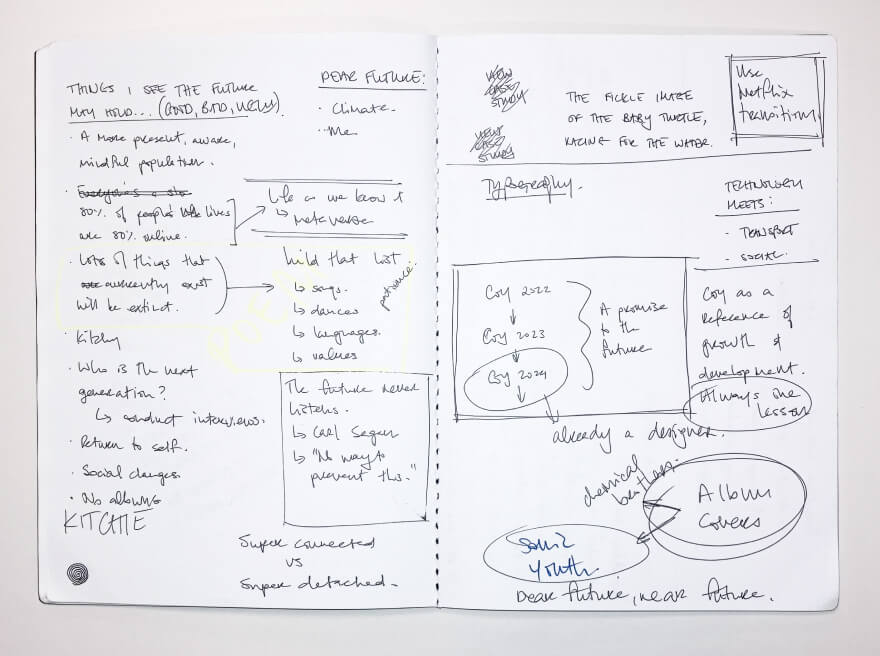 THINGS I SEE THE FUTURE
MAY HOLD... (GOOD, BAD, UGLY).
· A more present, aware,
mindful population.
80% of people's lives
are 80% online.
· Lots of things that
currently exist
will be extinct.
· Kitchy
· Who is the next
generation?
↳ conduct interviews.
· Return to self.
· Social changes
· No albums
KITCHIE
DEAR FUTURE:
· Climate.
· Me
Life as we know it
↳ metaverse
build that list
↳ sags.
↳ dances
↳ languages.
↳ values
patience.
POEM
The future never
listens.
↳ Carl Sagan
↳ "No way to
prevent this."
Super connected
vs
Super detached.
VIEW
CASE
STUDY
VIEW
CASE
STUDY
THE FICKLE IMAGE
OF THE BABY TURTLE,
RACING FOR THE WATER.
Use
Netflix
transitions.
Typography.
TECHNOLOGY
MEETS:
- TRANSPORT
- SOCIAL.
Coy 2022
Coy 2023
Coy 2024
A promise
to the
future
Coy as a
reference of
growth &
development.
Always one
lesson
already a designer.
chemical
brothers.
Album
Covers
Sonic
Youth.
Dear future, near future.